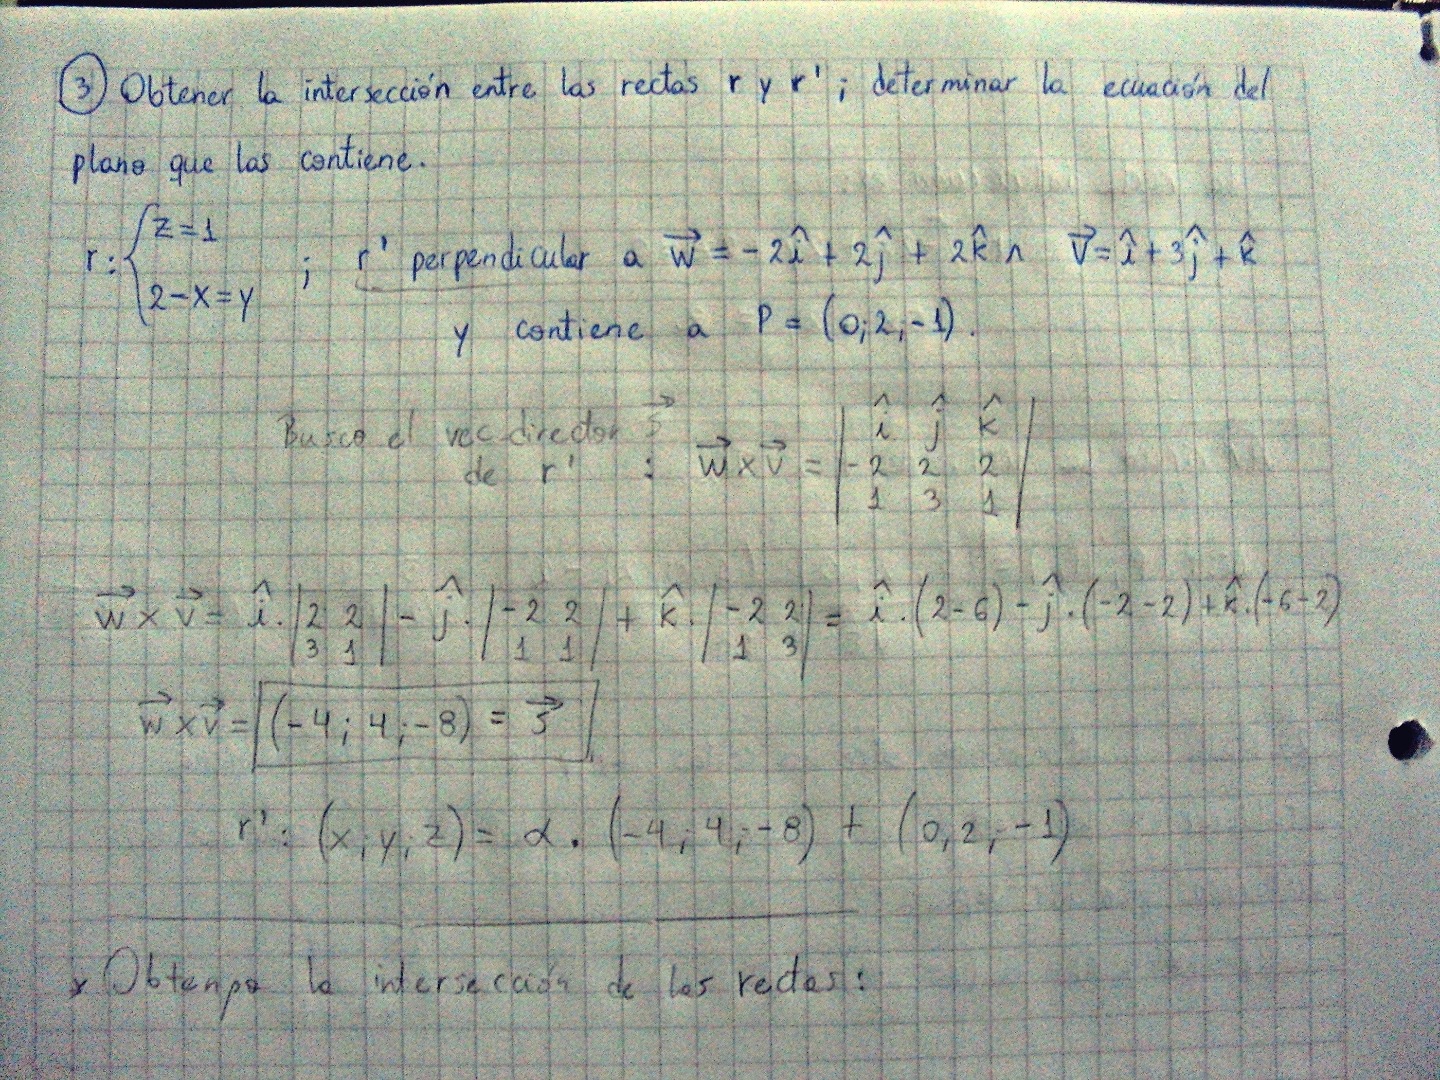 ③ Obtener la intersección entre las rectas r y r' ; determinar la ecuación del
plano que las contiene.
r: { z=1
2-x=y ; r' perpendicular a w⃗ = -2î + 2ĵ + 2k̂ ∧ v⃗ = î + 3ĵ + k̂
y contiene a P = (0;2;-1).
Busco el vec. director s⃗
de r' : w⃗ x v⃗ = | î ĵ k̂
-2 2 2
1 3 1 |
w⃗ x v⃗ = î . |2 2
3 1| - ĵ . |-2 2
1 1| + k̂ . |-2 2
1 3| = î . (2-6) - ĵ . (-2-2) + k̂ . (-6-2)
w⃗ x v⃗ = (-4; 4; -8) = s⃗
r': (x; y; z) = α . (-4; 4; -8) + (0; 2; -1)
* Obtengo la intersección de las rectas: